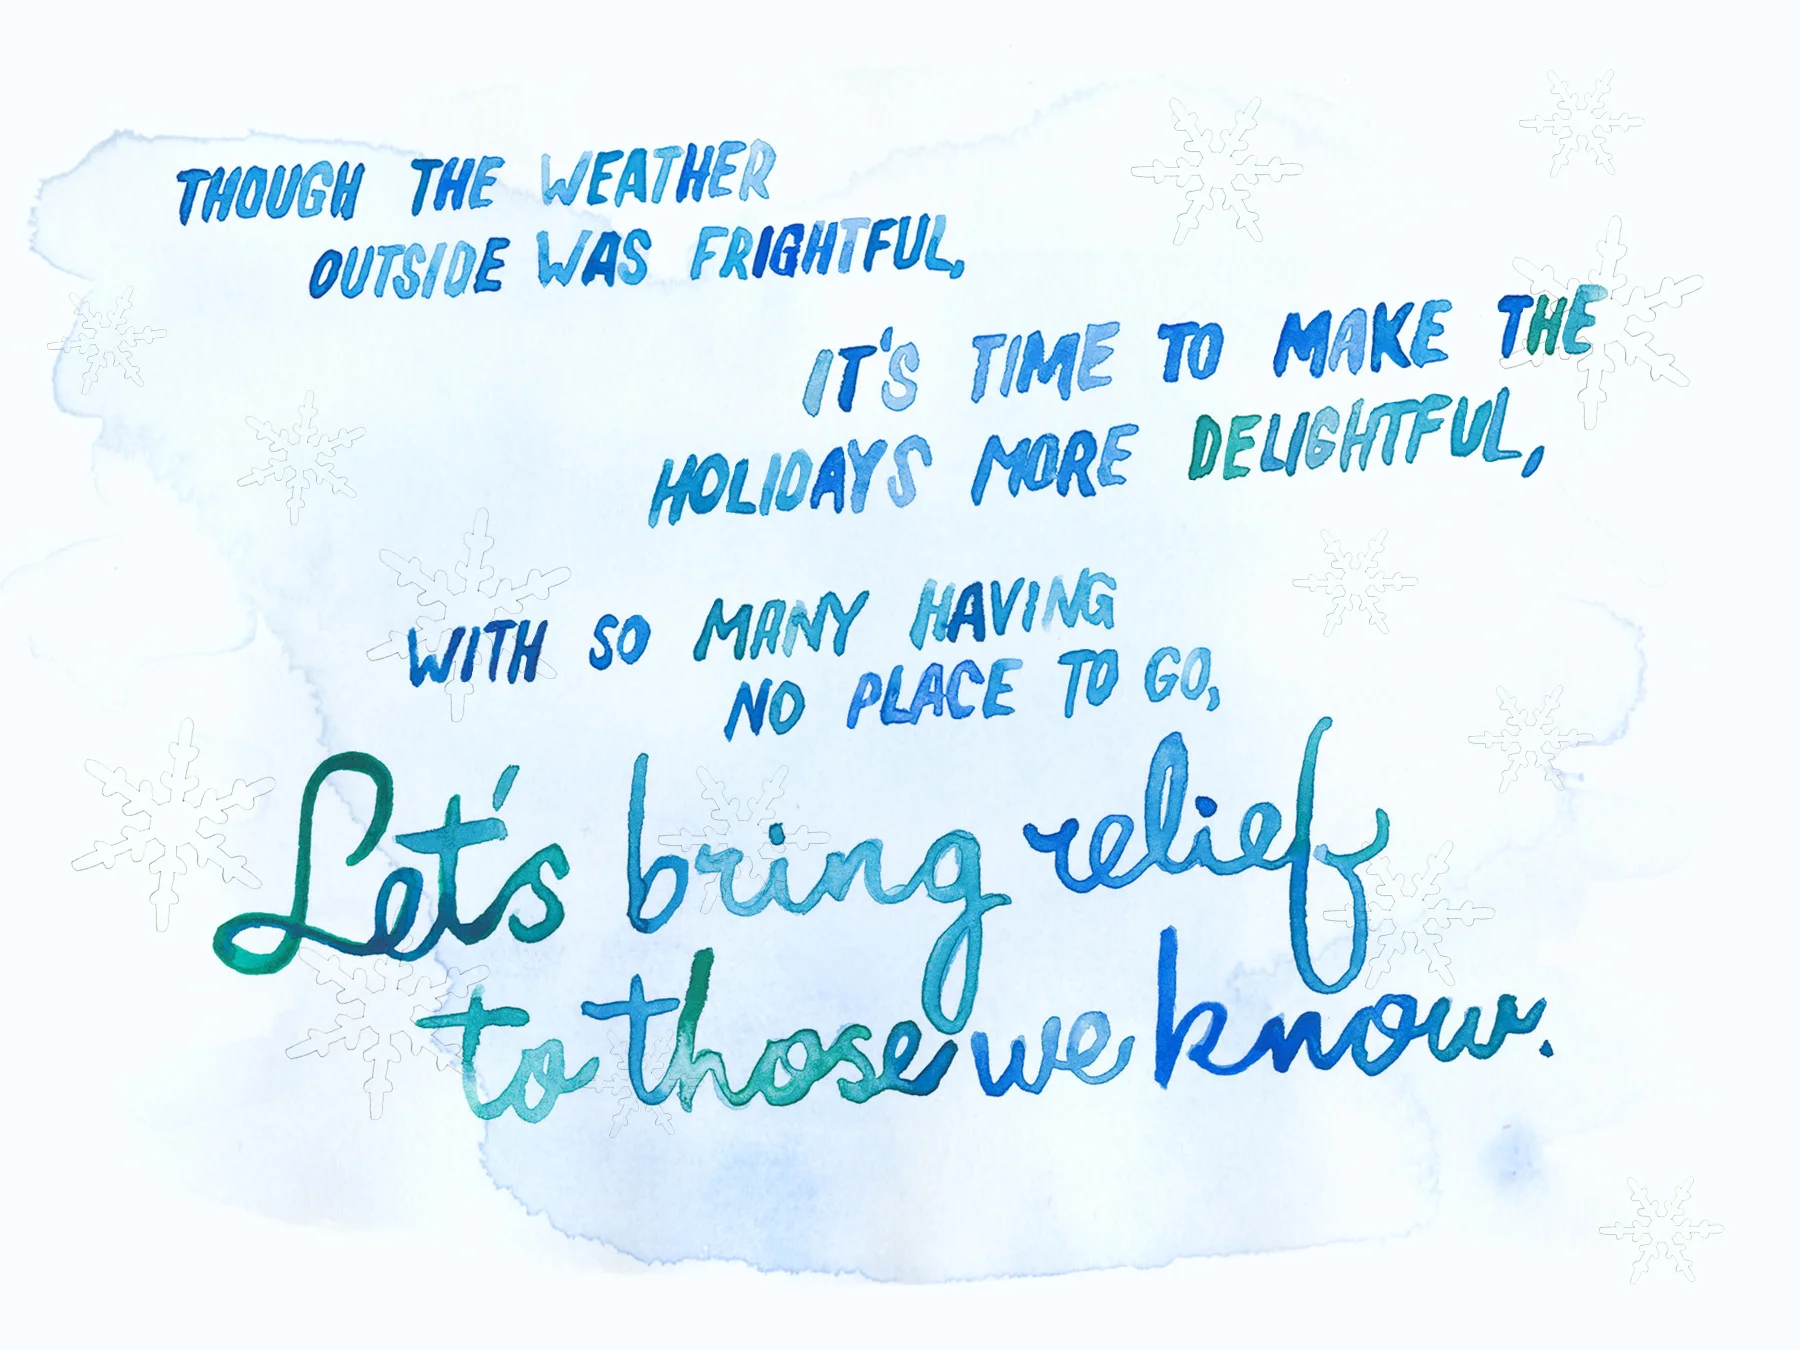 THOUGH THE WEATHER
OUTSIDE WAS FRIGHTFUL,
IT'S TIME TO MAKE THE
HOLIDAYS MORE DELIGHTFUL,
WITH SO MANY HAVING
NO PLACE TO GO,
Let's bring relief
to those we know.